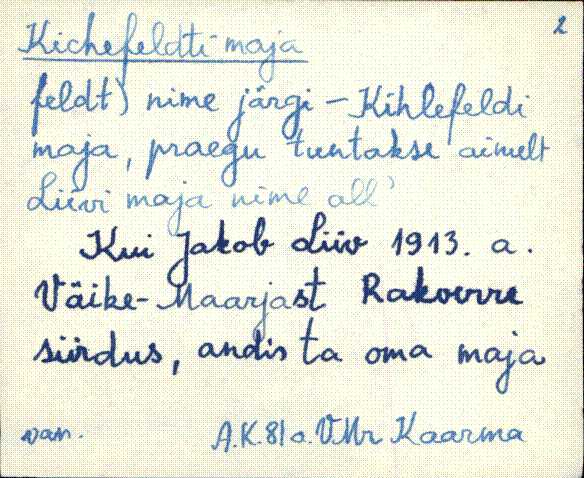 2
Kichefeldti-maja
feldt) nime järgi - Kihlefeldi
maja, praegu tuntakse aimelt
Liivi maja nime all"
Kui Jakob Liiv 1913. a.
Väike-Maarjast Rakverre
siirdus, andis ta oma maja
van. A.K. 81 a. VMr Kaarma